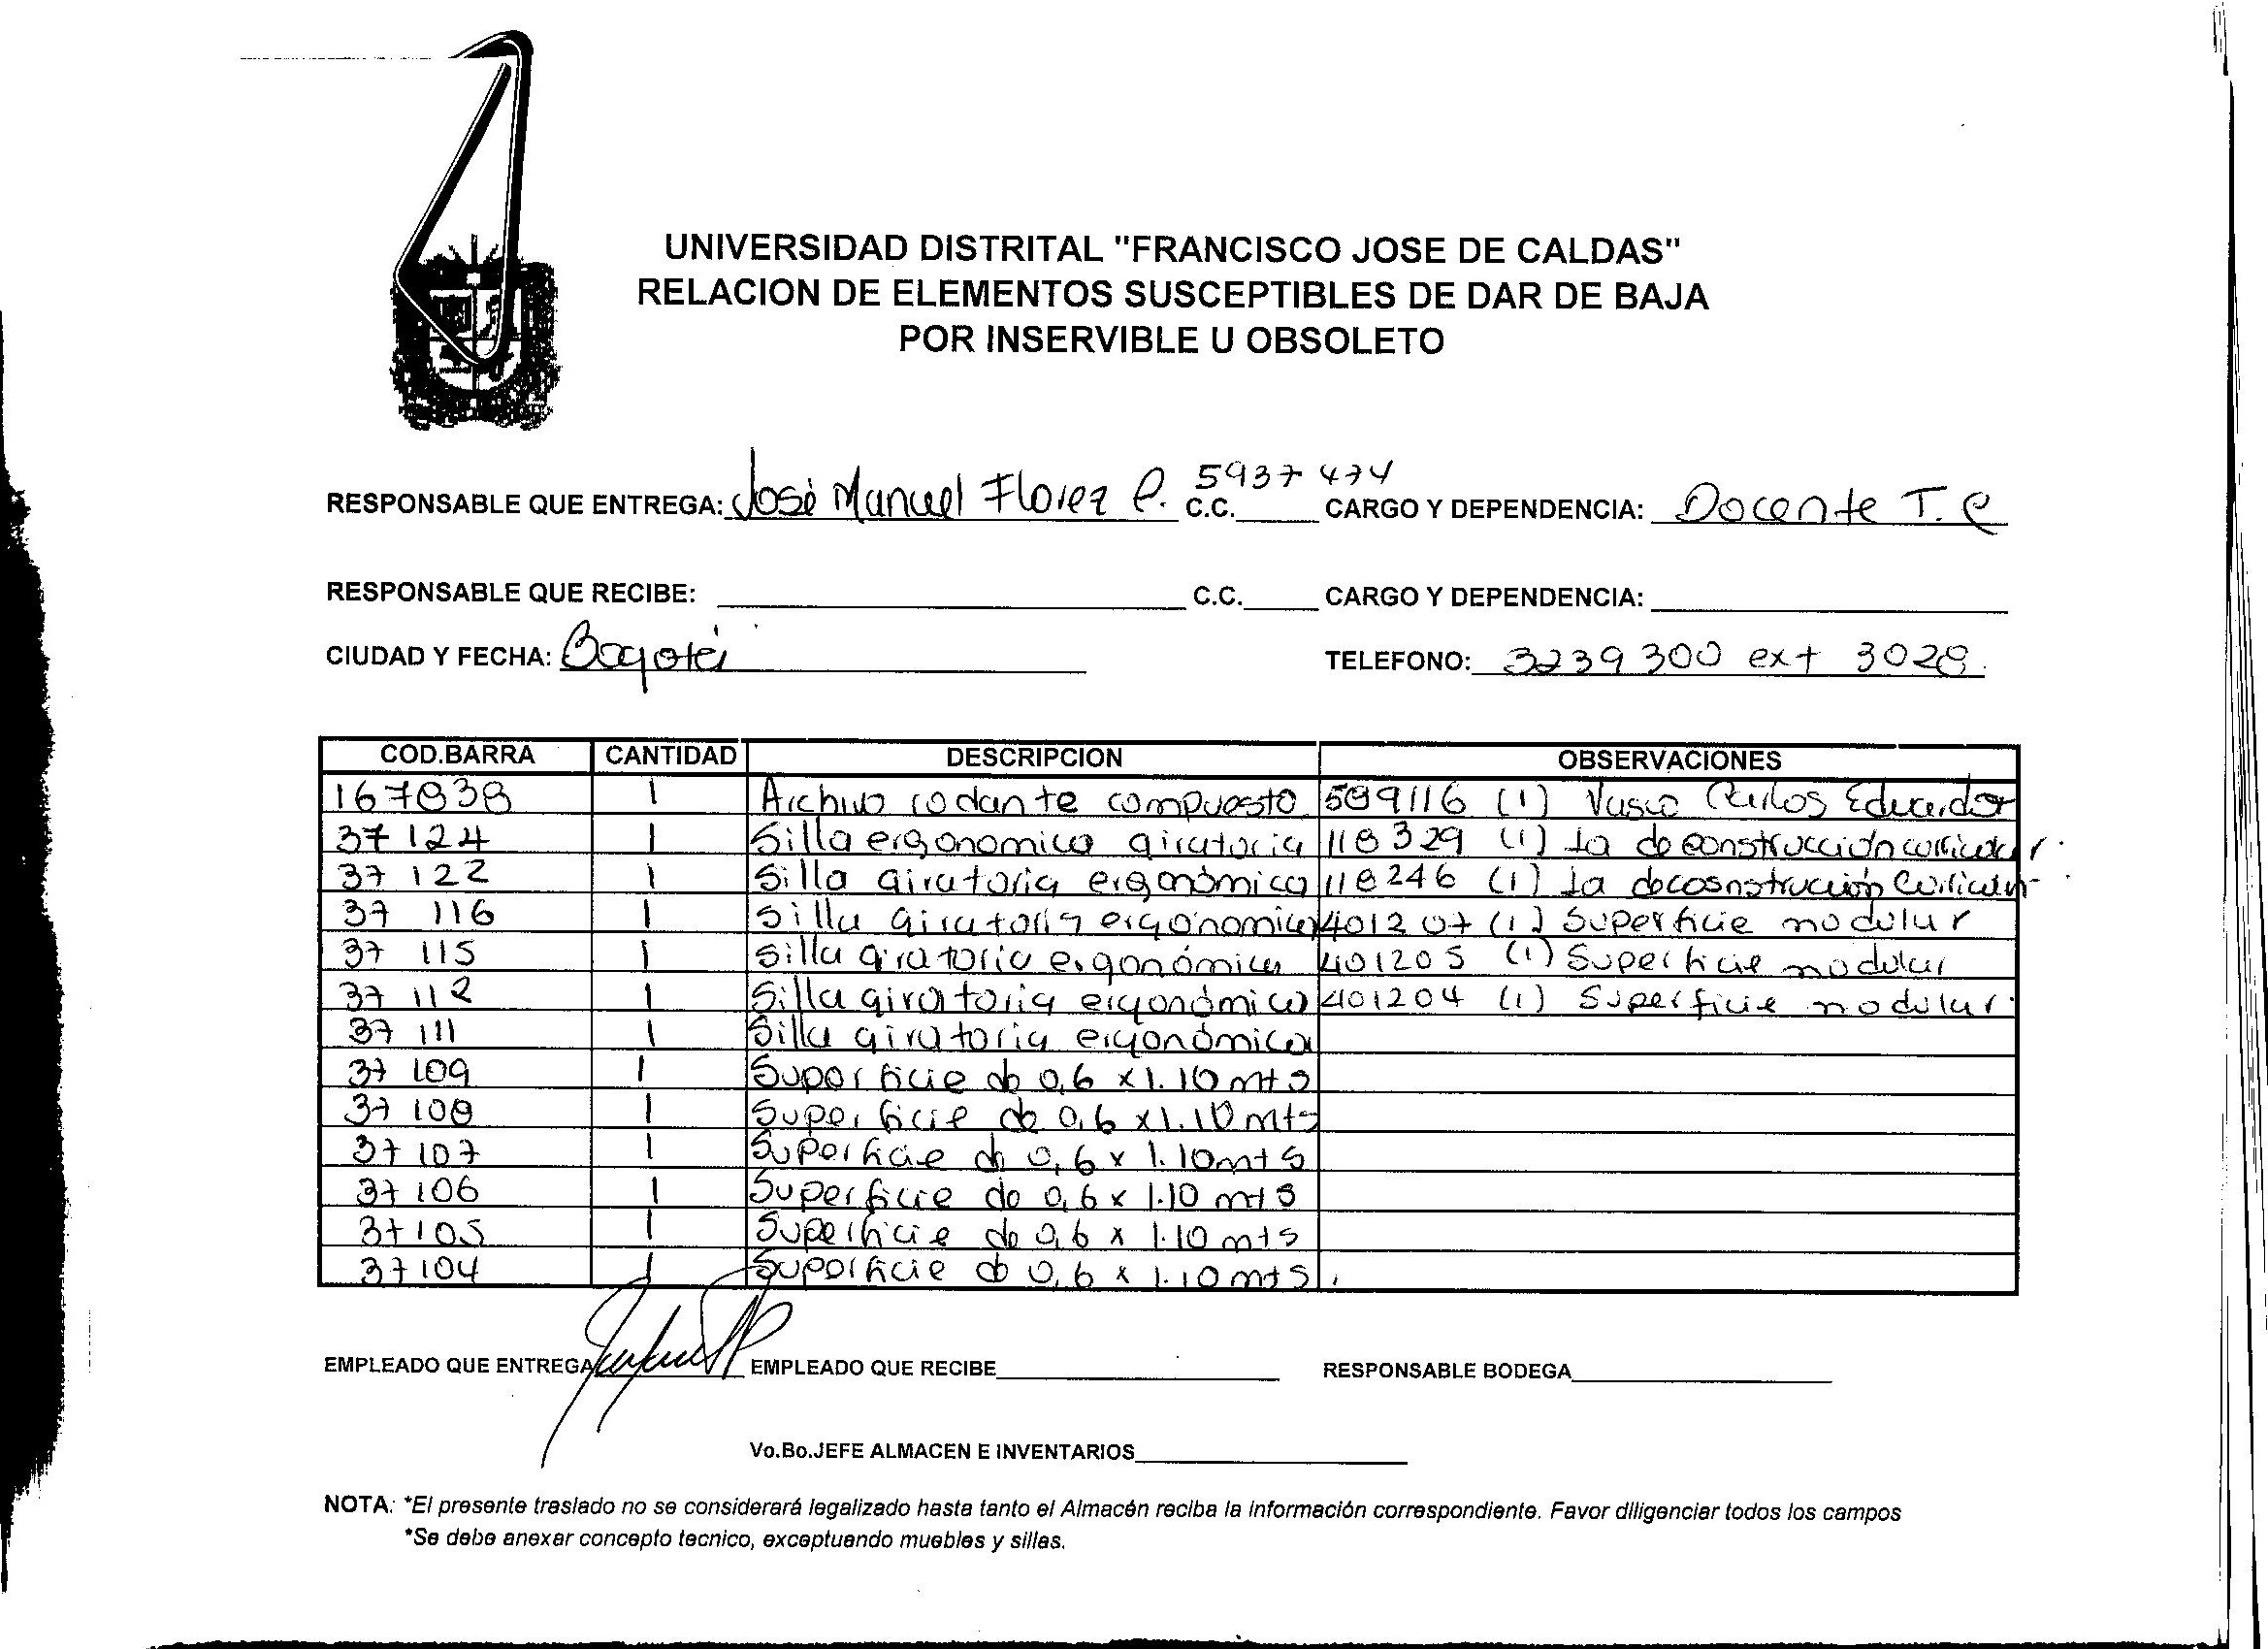 UNIVERSIDAD DISTRITAL "FRANCISCO JOSE DE CALDAS"
RELACION DE ELEMENTOS SUSCEPTIBLES DE DAR DE BAJA
POR INSERVIBLE U OBSOLETO
RESPONSABLE QUE ENTREGA: José Manuel Florez P. C.C. 5937474 CARGO Y DEPENDENCIA: Docente T. C
RESPONSABLE QUE RECIBE: C.C. CARGO Y DEPENDENCIA:
CIUDAD Y FECHA: Bogotá TELEFONO: 3239300 ext 3028.
COD.BARRA CANTIDAD DESCRIPCION OBSERVACIONES
167838 1 Archivo rodante compuesto 589116 (1) Vasco Carlos Eduardo
37124 1 Silla ergonomica giratoria 118329 (1) La deconstrucción curricular.
37122 1 Silla giratoria ergonómica 118246 (1) La decosnstrucuión
37116 1 Silla giratoria ergónomica 401207 (1) Superficie modular
37115 1 Silla giratoria ergonómica 401205 (1) Superficie modular
37112 1 Silla giratoria ergonómica 401204 (1) Superficie modular.
37111 1 Silla giratoria ergonómica
37109 1 Superficie de 0,6 x 1.10 mts
37108 1 Superficie de 0,6 x 1.10 mts
37107 1 Superficie de 0,6 x 1.10 mts
37106 1 Superficie de 0,6 x 1.10 mts
37105 1 Superficie de 0,6 x 1.10 mts
37104 1 Superficie de 0,6 x 1.10 mts.
EMPLEADO QUE ENTREGA EMPLEADO QUE RECIBE RESPONSABLE BODEGA
Vo.Bo.JEFE ALMACEN E INVENTARIOS
NOTA: *El presente traslado no se considerará legalizado hasta tanto el Almacén reciba la información correspondiente. Favor diligenciar todos los campos
*Se debe anexar concepto tecnico, exceptuando muebles y sillas.